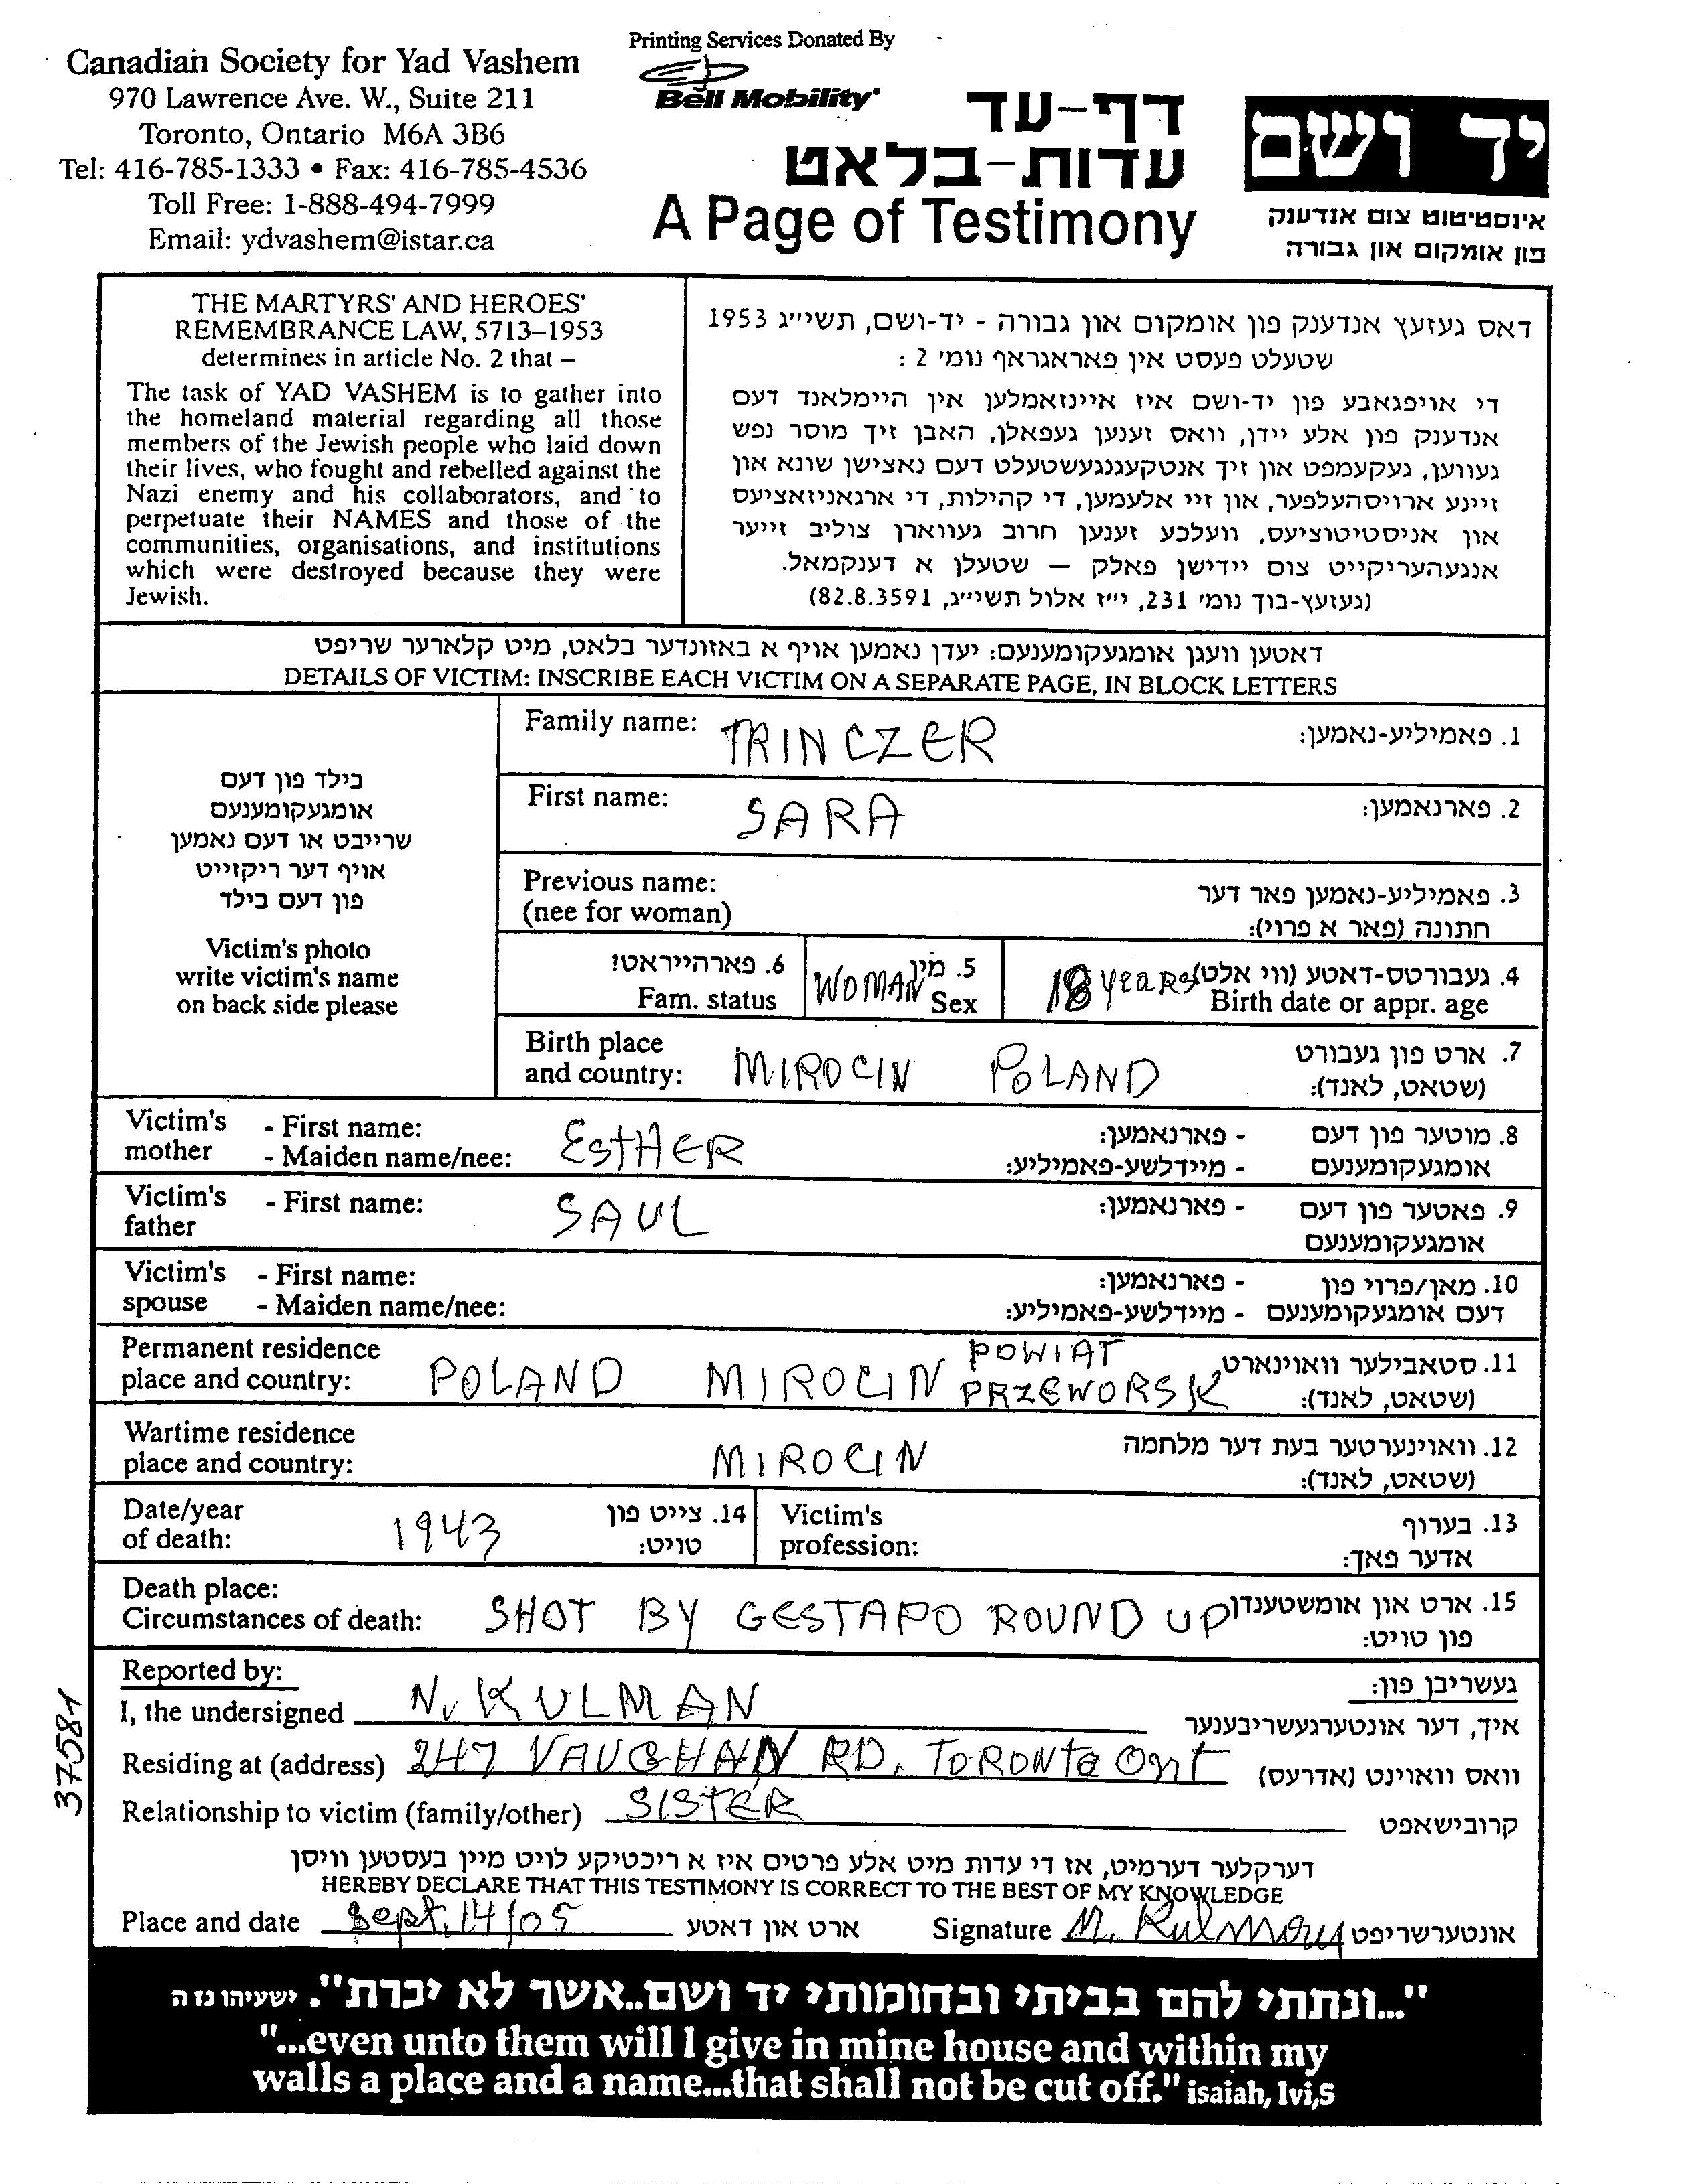 Canadian Society for Yad Vashem
970 Lawrence Ave. W., Suite 211
Toronto, Ontario M6A 3B6
Tel: 416-785-1333 • Fax: 416-785-4536
Toll Free: 1-888-494-7999
Email: ydvashem@istar.ca
Printing Services Donated By
Bell Mobility
דף-עד
עדות-בלאט
A Page of Testimony
יד ושם
אינסטיטוט צום אנדענק
פון אומקום און גבורה
THE MARTYRS' AND HEROES'
REMEMBRANCE LAW, 5713–1953
determines in article No. 2 that –
The task of YAD VASHEM is to gather into
the homeland material regarding all those
members of the Jewish people who laid down
their lives, who fought and rebelled against the
Nazi enemy and his collaborators, and to
perpetuate their NAMES and those of the
communities, organisations, and institutions
which were destroyed because they were
Jewish.
דאס געזעץ אנדענק פון אומקום און גבורה - יד-ושם, תשי״ג 1953
שטעלט פעסט אין פאראגראף נומי 2 :
די אויפגאבע פון יד-ושם איז איינזאמלען אין היימלאנד דעם
אנדענק פון אלע יידן, וואס זענען געפאלן, האבן זיך מוסר נפש
געווען, געקעמפט און זיך אנטקעגנגעשטעלט דעם נאצישן שונא און
זיינע ארויסהעלפער, און זיי אלעמען, די קהילות, די ארגאניזאציעס
און אניסטיטוציעס, וועלכע זענען חרוב געווארן צוליב זייער
אנגעהעריקייט צום יידישן פאלק — שטעלן א דענקמאל.
(געזעץ-בוך נומי 231, י״ז אלול תשי״ג, 82.8.3591)
דאטען וועגן אומגעקומענעם: יעדן נאמען אויף א באזונדער בלאט, מיט קלארער שריפט
DETAILS OF VICTIM: INSCRIBE EACH VICTIM ON A SEPARATE PAGE, IN BLOCK LETTERS
בילד פון דעם
אומגעקומענעם
שרייבט או דעם נאמען
אויף דער ריקזייט
פון דעם בילד
Victim's photo
write victim's name
on back side please
Family name: TRINCZER 1. פאמיליע-נאמען:
First name: SARA 2. פארנאמען:
Previous name: 3. פאמיליע-נאמען פאר דער
(nee for woman) חתונה (פאר א פרוי):
6. פארהייראט? WOMAN 5. מין 18 YEARS 4. געבורטס-דאטע (ווי אלט)
Fam. status Sex Birth date or appr. age
Birth place 7. ארט פון געבורט
and country: MIROCIN POLAND (שטאט, לאנד):
Victim's - First name: ESTHER - פארנאמען: 8. מוטער פון דעם
mother - Maiden name/nee: - מיידלשע-פאמיליע: אומגעקומענעם
Victim's - First name: SAUL - פארנאמען: 9. פאטער פון דעם
father אומגעקומענעם
Victim's - First name: - פארנאמען: 10. מאן/פרוי פון
spouse - Maiden name/nee: - מיידלשע-פאמיליע: דעם אומגעקומענעם
Permanent residence POWIAT 11. סטאבילער וואוינארט
place and country: POLAND MIROCIN PRZEWORSK (שטאט, לאנד):
Wartime residence 12. וואוינערטער בעת דער מלחמה
place and country: MIROCIN (שטאט, לאנד):
Date/year 14. צייט פון Victim's 13. בערוף
of death: 1943 טויט: profession: אדער פאך:
Death place: 15. ארט און אומשטענדן
Circumstances of death: SHOT BY GESTAPO ROUND UP פון טויט:
Reported by: געשריבן פון:
I, the undersigned N. KULMAN איך, דער אונטערגעשריבענער
Residing at (address) 247 VAUGHAN RD. TORONTO Ont וואס וואוינט (אדרעס)
Relationship to victim (family/other) SISTER קרובישאפט
דערקלער דערמיט, אז די עדות מיט אלע פרטים איז א ריכטיקע לויט מיין בעסטען וויסן
HEREBY DECLARE THAT THIS TESTIMONY IS CORRECT TO THE BEST OF MY KNOWLEDGE
Place and date Sept. 14/05 ארט און דאטע Signature N. Kulman אונטערשריפט
37581
"...ונתתי להם בביתי ובחומותי יד ושם..אשר לא יכרת". ישעיהו נז ה
"...even unto them will I give in mine house and within my
walls a place and a name...that shall not be cut off." isaiah, lvi,5